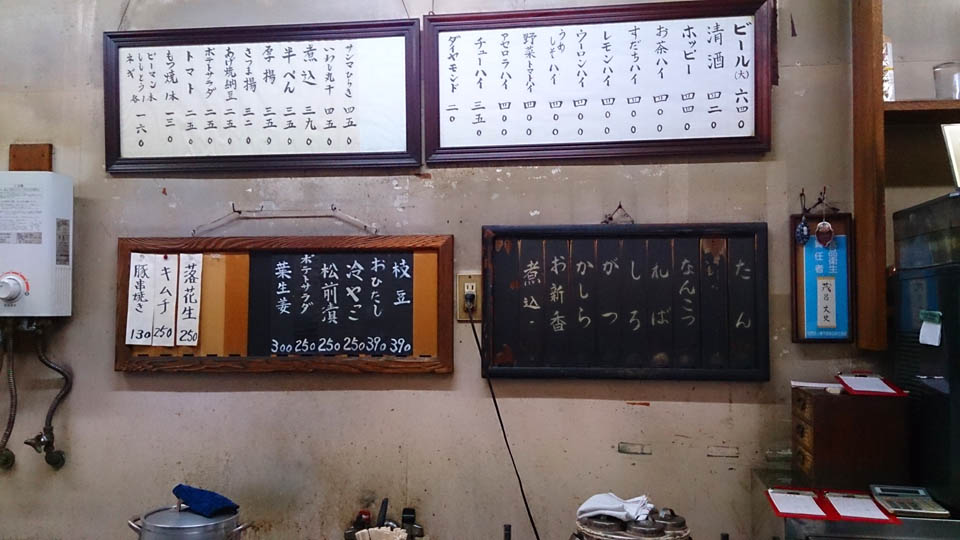 ビール(大) 六四〇
清酒 四二〇
ホッピー 四四〇
お茶ハイ 四〇〇
すだちハイ 四〇〇
レモンハイ 四〇〇
ウーロンハイ 四〇〇
うめしそハイ 四〇〇
野菜トマトハイ 四〇〇
アセロラハイ 四〇〇
チューハイ 三五〇
ダイヤモンド 二〇
サンマひらき 四五〇
いわし丸干 四五〇
煮込 三九〇
半ぺん 三五〇
厚揚 三五〇
さつま揚 三二〇
あげ焼納豆 二五〇
ポテトサラダ 二五〇
トマト 二五〇
もつ焼 1本 一三〇
ピーマン1本
ししとう 各1 一六〇
ネギ
たん
なんこつ
れば
しろ
がつ
かしら
お新香
煮込
枝豆 390
おひたし 390
冷やっこ 250
松前漬 250
ポテトサラダ 250
葉生姜 300
落花生 250
キムチ 250
豚串焼き 130